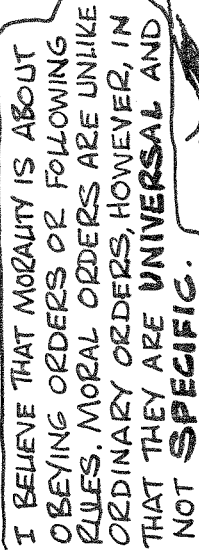 I BELIEVE THAT MORALITY IS ABOUT
OBEYING ORDERS OR FOLLOWING
RULES. MORAL ORDERS ARE UNLIKE
ORDINARY ORDERS, HOWEVER, IN
THAT THEY ARE UNIVERSAL AND
NOT SPECIFIC.